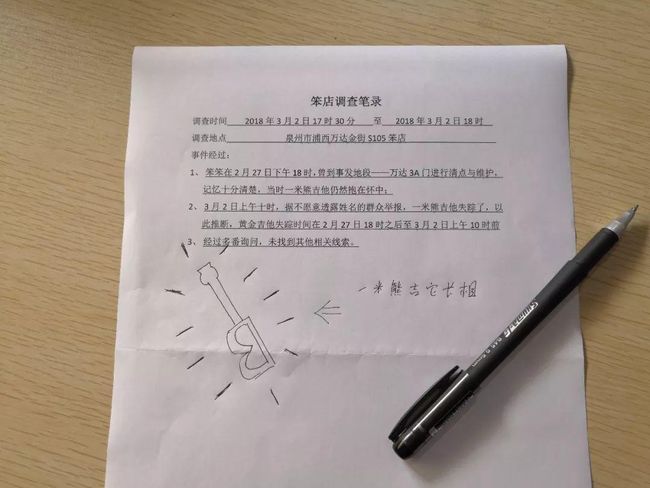 笨店调查笔录
调查时间 2018年3月2日17时30分 至 2018年3月2日18时
调查地点 泉州市浦西万达金街S105笨店
事件经过：
1、笨笨在2月27日下午18时，曾到事发地段——万达3A门进行清点与维护，
记忆十分清楚，当时一米熊吉他仍然抱在怀中；
2、3月2日上午十时，据不愿意透露姓名的群众举报，一米熊吉他失踪了，以
此推断，黄金吉他失踪时间在2月27日18时之后至3月2日上午10时前
3、经过多番询问，未找到其他相关线索。
一米熊吉它长相